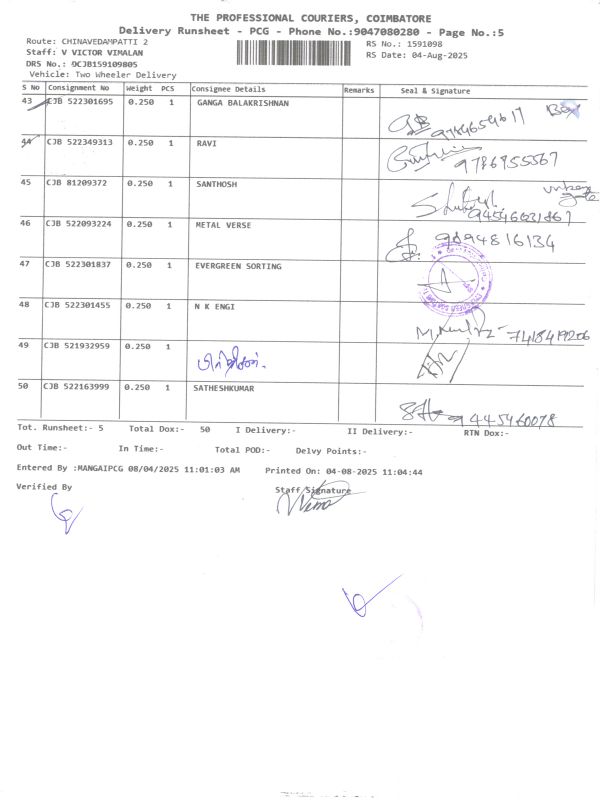 THE PROFESSIONAL COURIERS, COIMBATORE
Delivery Runsheet - PCG - Phone No.:9047080280 - Page No.:5
Route: CHINAVEDAMPATTI 2
RS No.: 1591098
Staff: V VICTOR VIMALAN
RS Date: 04-Aug-2025
DRS No.: 9CJB159109805
Vehicle: Two Wheeler Delivery
S No Consignment No Weight PCS Consignee Details Remarks Seal & Signature
43 CJB 522301695 0.250 1 GANGA BALAKRISHNAN
44 CJB 522349313 0.250 1 RAVI
9786955567
45 CJB 81209372 0.250 1 SANTHOSH
46 CJB 522093224 0.250 1 METAL VERSE
9894816134
47 CJB 522301837 0.250 1 EVERGREEN SORTING
48 CJB 522301455 0.250 1 N K ENGI
7418419206
49 CJB 521932959 0.250 1
50 CJB 522163999 0.250 1 SATHESHKUMAR
9445460078
Tot. Runsheet:- 5 Total Dox:- 50 I Delivery:- II Delivery:- RTN Dox:-
Out Time:- In Time:- Total POD:- Delvy Points:-
Entered By :MANGAIPCG 08/04/2025 11:01:03 AM Printed On: 04-08-2025 11:04:44
Verified By Staff Signature